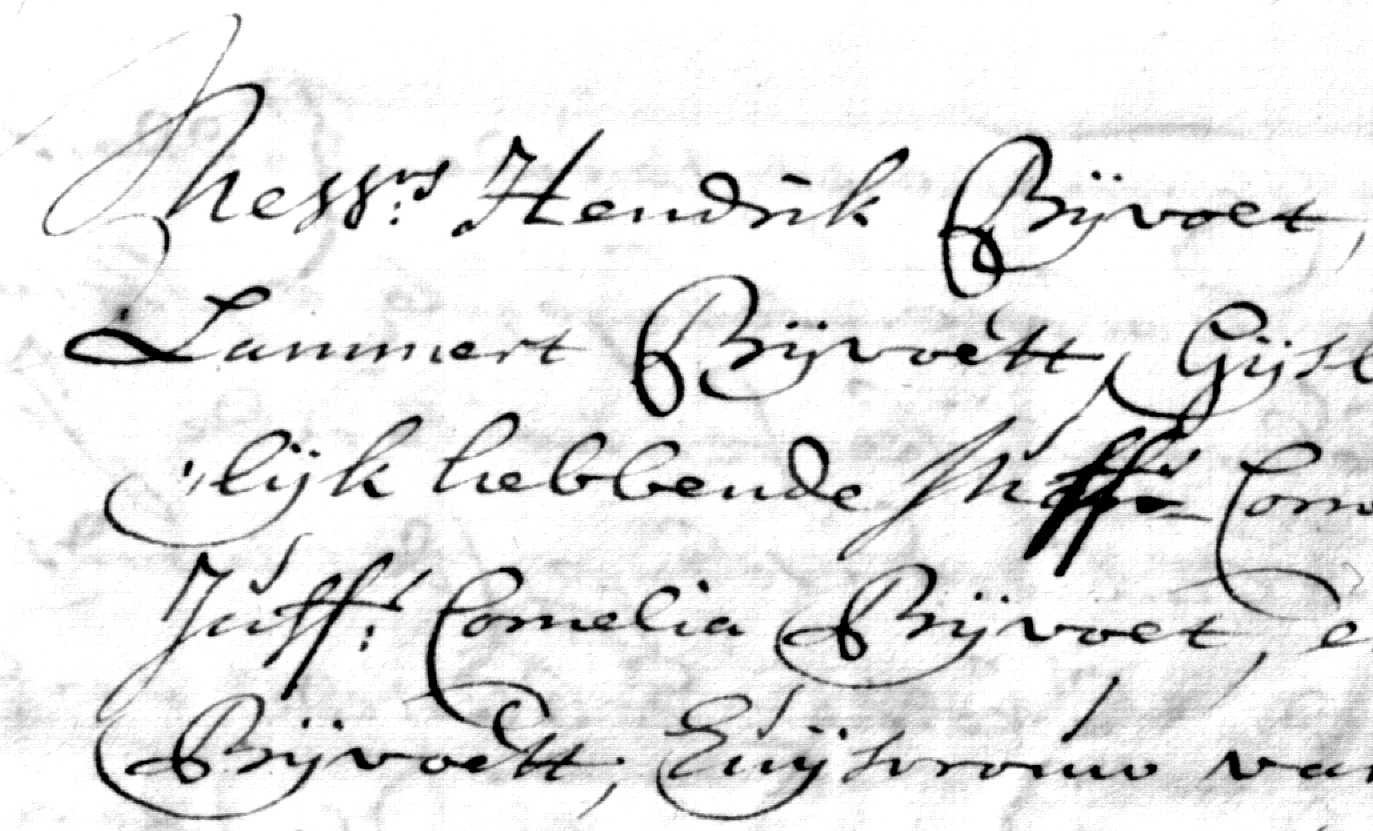 Mess.rs Hendrik Bijvoet,
Lammert Bijvoett, Gijsb
elijk hebbende Juffr. Corn
Juffr: Cornelia Bijvoet, e
Bijvoett, Huijsvrouw van